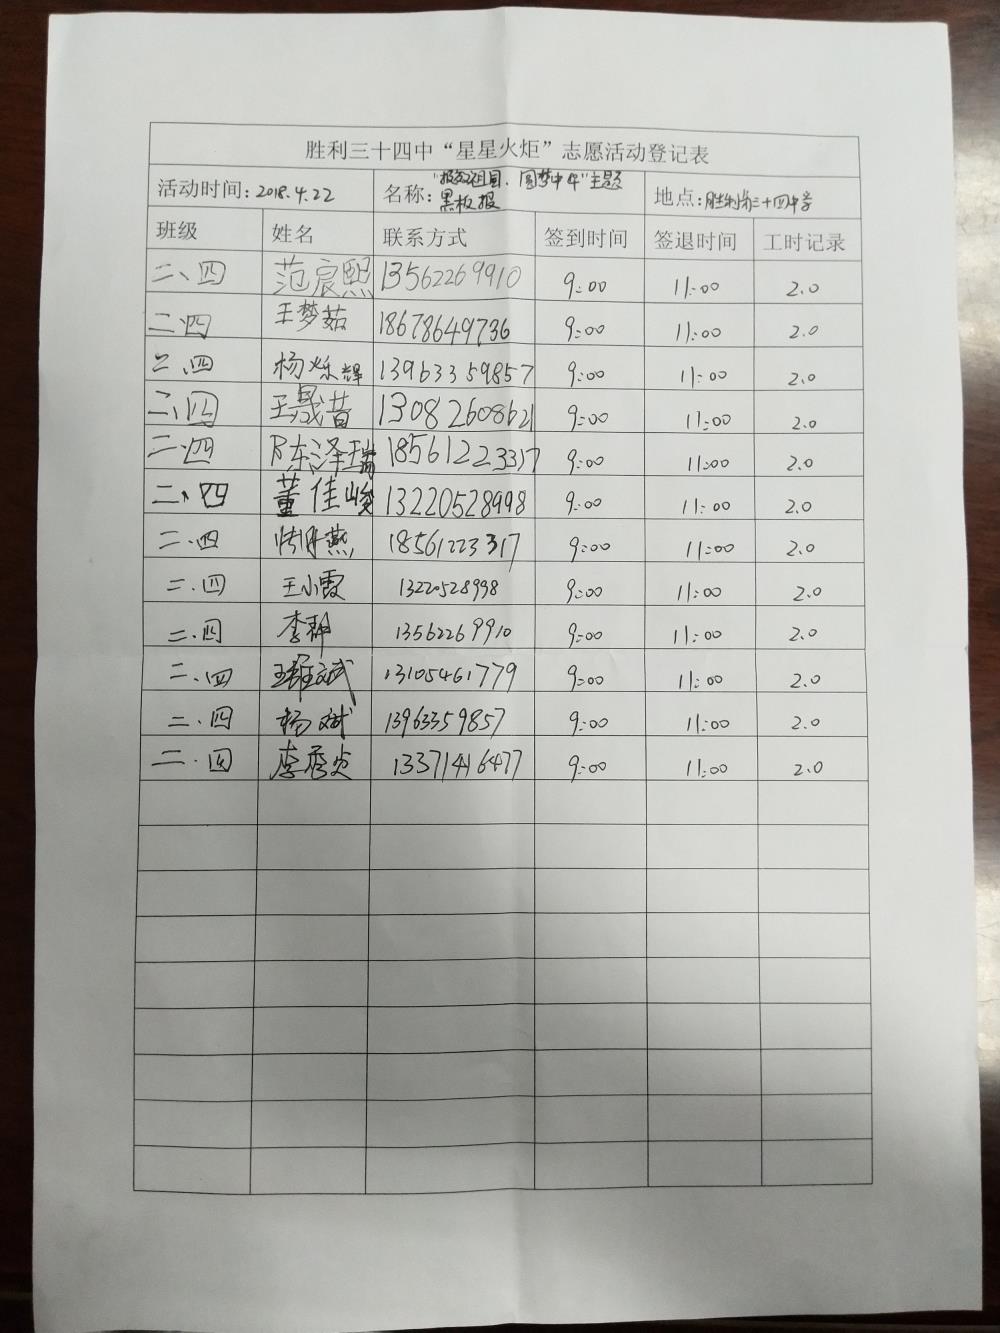 胜利三十四中“星星火炬”志愿活动登记表
活动时间：2018.4.22 名称：“报效祖国、圆梦中华”主题黑板报 地点：胜利第三十四中学
班级 姓名 联系方式 签到时间 签退时间 工时记录
二、四 范宸熙 13562269910 9:00 11:00 2.0
二、四 王梦茹 18678649736 9:00 11:00 2.0
二、四 杨烁辉 13963359857 9:00 11:00 2.0
二、四 王晟昔 13082608621 9:00 11:00 2.0
二、四 陈泽瑞 18561223317 9:00 11:00 2.0
二、四 董佳峻 13220528998 9:00 11:00 2.0
二、四 18561223317 9:00 11:00 2.0
二、四 王小霞 13220528998 9:00 11:00 2.0
二、四 李静 13562269910 9:00 11:00 2.0
二、四 13105461779 9:00 11:00 2.0
二、四 杨斌 13963359857 9:00 11:00 2.0
二、四 13371416477 9:00 11:00 2.0